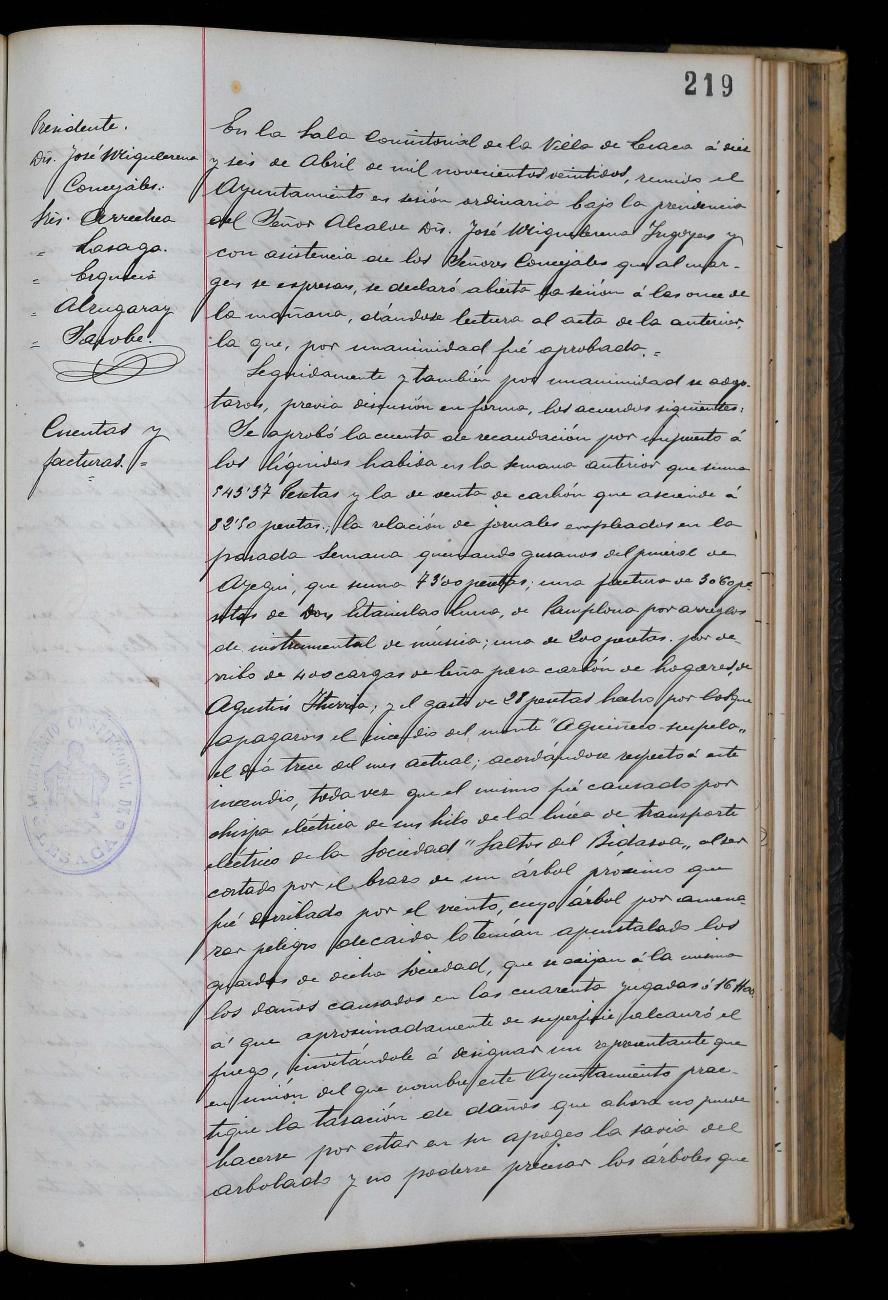 219
Presidente.
Dn. José Miquelerena
Concejales.
Sres. Arrechea
" Lasaga.
" Erquicia
" Alzugaray
" Jacobe.
Cuentas y
facturas. =
En la Sala Consistorial de la Villa de Lesaca á diez
y seis de Abril de mil novecientos veintidos, reunido el
Ayuntamiento en sesión ordinaria bajo la presidencia
del Señor Alcalde Dn. José Miquelerena Yrigoyen y
con asistencia de los Señores Concejales que al mar-
gen se expresan, se declaró abierta la sesión á las once de
la mañana, dándose lectura al acta de la anterior,
la que, por unanimidad fué aprobada. =
Seguidamente y también por unanimidad se adop-
taron, previa discusión en forma, los acuerdos siguientes:
Se aprobó la cuenta de recaudación por impuesto á
los líquidos habida en la semana anterior que suma
543'37 Pesetas y la de venta de carbón que asciende á
82'50 pesetas.; la relación de jornales empleados en la
pasada semana quemando gusanos del pinéral de
Ayegui, que suma 73'00 pesetas; una factura de 30'60 pe-
setas de Don Estanislao Luna, de Pamplona por arreglos
de instrumental de música; una de 200 pesetas. por de-
rribo de 400 cargas de leña para carbón de hogares, de
Agustín Iturria; y el gasto de 28 pesetas hecho por los que
apagaron el incendio del monte "
el día trece del mes actual; acordándose respecto á este
incendio, toda vez que el mismo fué causado por
chispa eléctrica de un hilo de la línea de transporte
eléctrico de la Sociedad "Saltos del Bidasoa", al ser
cortado por el brazo de un árbol próximo que
fué derribado por el viento, cuyo árbol por amena-
zar peligro de caida lo tenían apuntalado los
guardas de dicha Sociedad, que se exijan á la misma
los daños causados en las cuarenta yugadas ó 16 Htas.
á que aproximadamente de superficie alcanzó el
fuego, invitándole á designar un representante que
en unión del que nombre este Ayuntamiento prac-
tique la tasación de daños que ahora no puede
hacerse por estar en su apogeo la savia del
arbolado y no poderse precisar los árboles que
AYUNTAMIENTO CONSTITUCIONAL DE LESACA